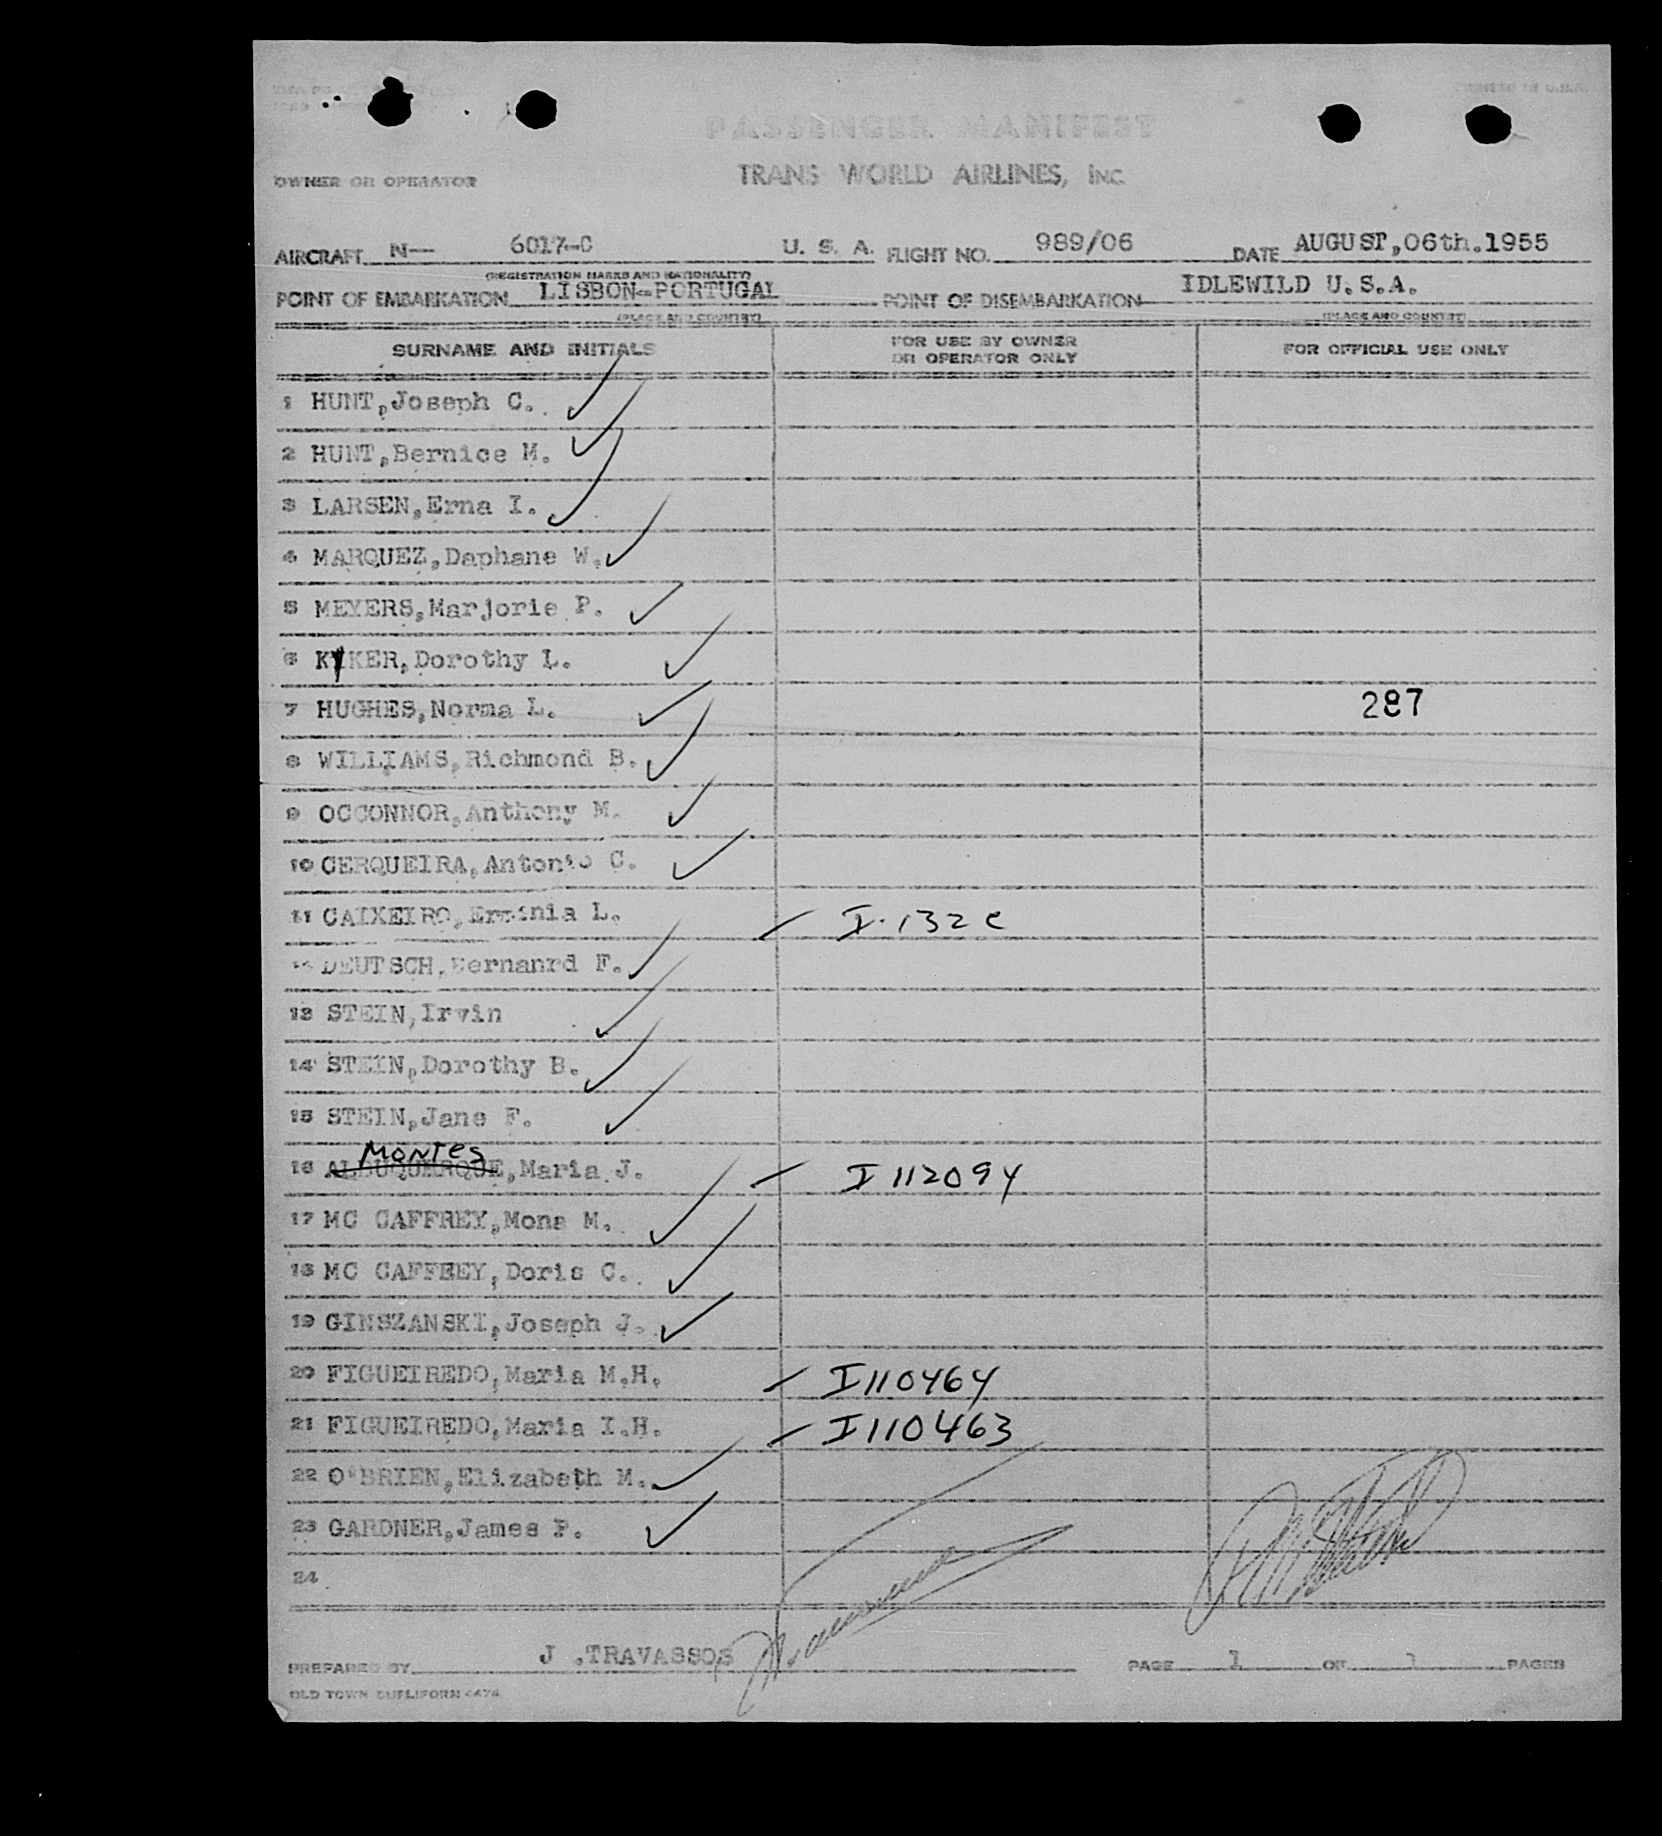 PRINTED IN U.S.A.
PASSENGER MANIFEST
OWNER OR OPERATOR TRANS WORLD AIRLINES, INC.
AIRCRAFT N— 6017-C U. S. A. FLIGHT NO. 989/06 DATE AUGUST,06th.1955
(REGISTRATION MARKS AND NATIONALITY)
POINT OF EMBARKATION LISBON-PORTUGAL POINT OF DISEMBARKATION IDLEWILD U.S.A.
(PLACE AND COUNTRY) (PLACE AND COUNTRY)
SURNAME AND INITIALS FOR USE BY OWNER OR OPERATOR ONLY FOR OFFICIAL USE ONLY
1 HUNT,Joseph C.
2 HUNT,Bernice M.
3 LARSEN,Erna I.
4 MARQUEZ,Daphane W.
5 MEYERS,Marjorie P.
6 KYKER,Dorothy L.
7 HUGHES,Norma L. 287
8 WILLIAMS,Richmond B.
9 OCCONNOR,Anthony M.
10 CERQUEIRA,Antonio C.
11 CAIXEIRO,Erminia L. I-132 c
12 DEUTSCH,Bernanrd F.
13 STEIN,Irvin
14 STEIN,Dorothy B.
15 STEIN,Jane F.
Montes
16 ALBUQUERQUE,Maria J. I 112094
17 MC CAFFREY,Mona M.
18 MC CAFFREY,Doris C.
19 GINSZANSKI,Joseph J.
20 FIGUEIREDO,Maria M.H. I110464
21 FIGUEIREDO,Maria I.H. I110463
22 O'BRIEN,Elizabeth M.
23 GARDNER,James P.
24
PREPARED BY J .TRAVASSOS PAGE 1 OF 1 PAGES
OLD TOWN DUPLIFORM 4474